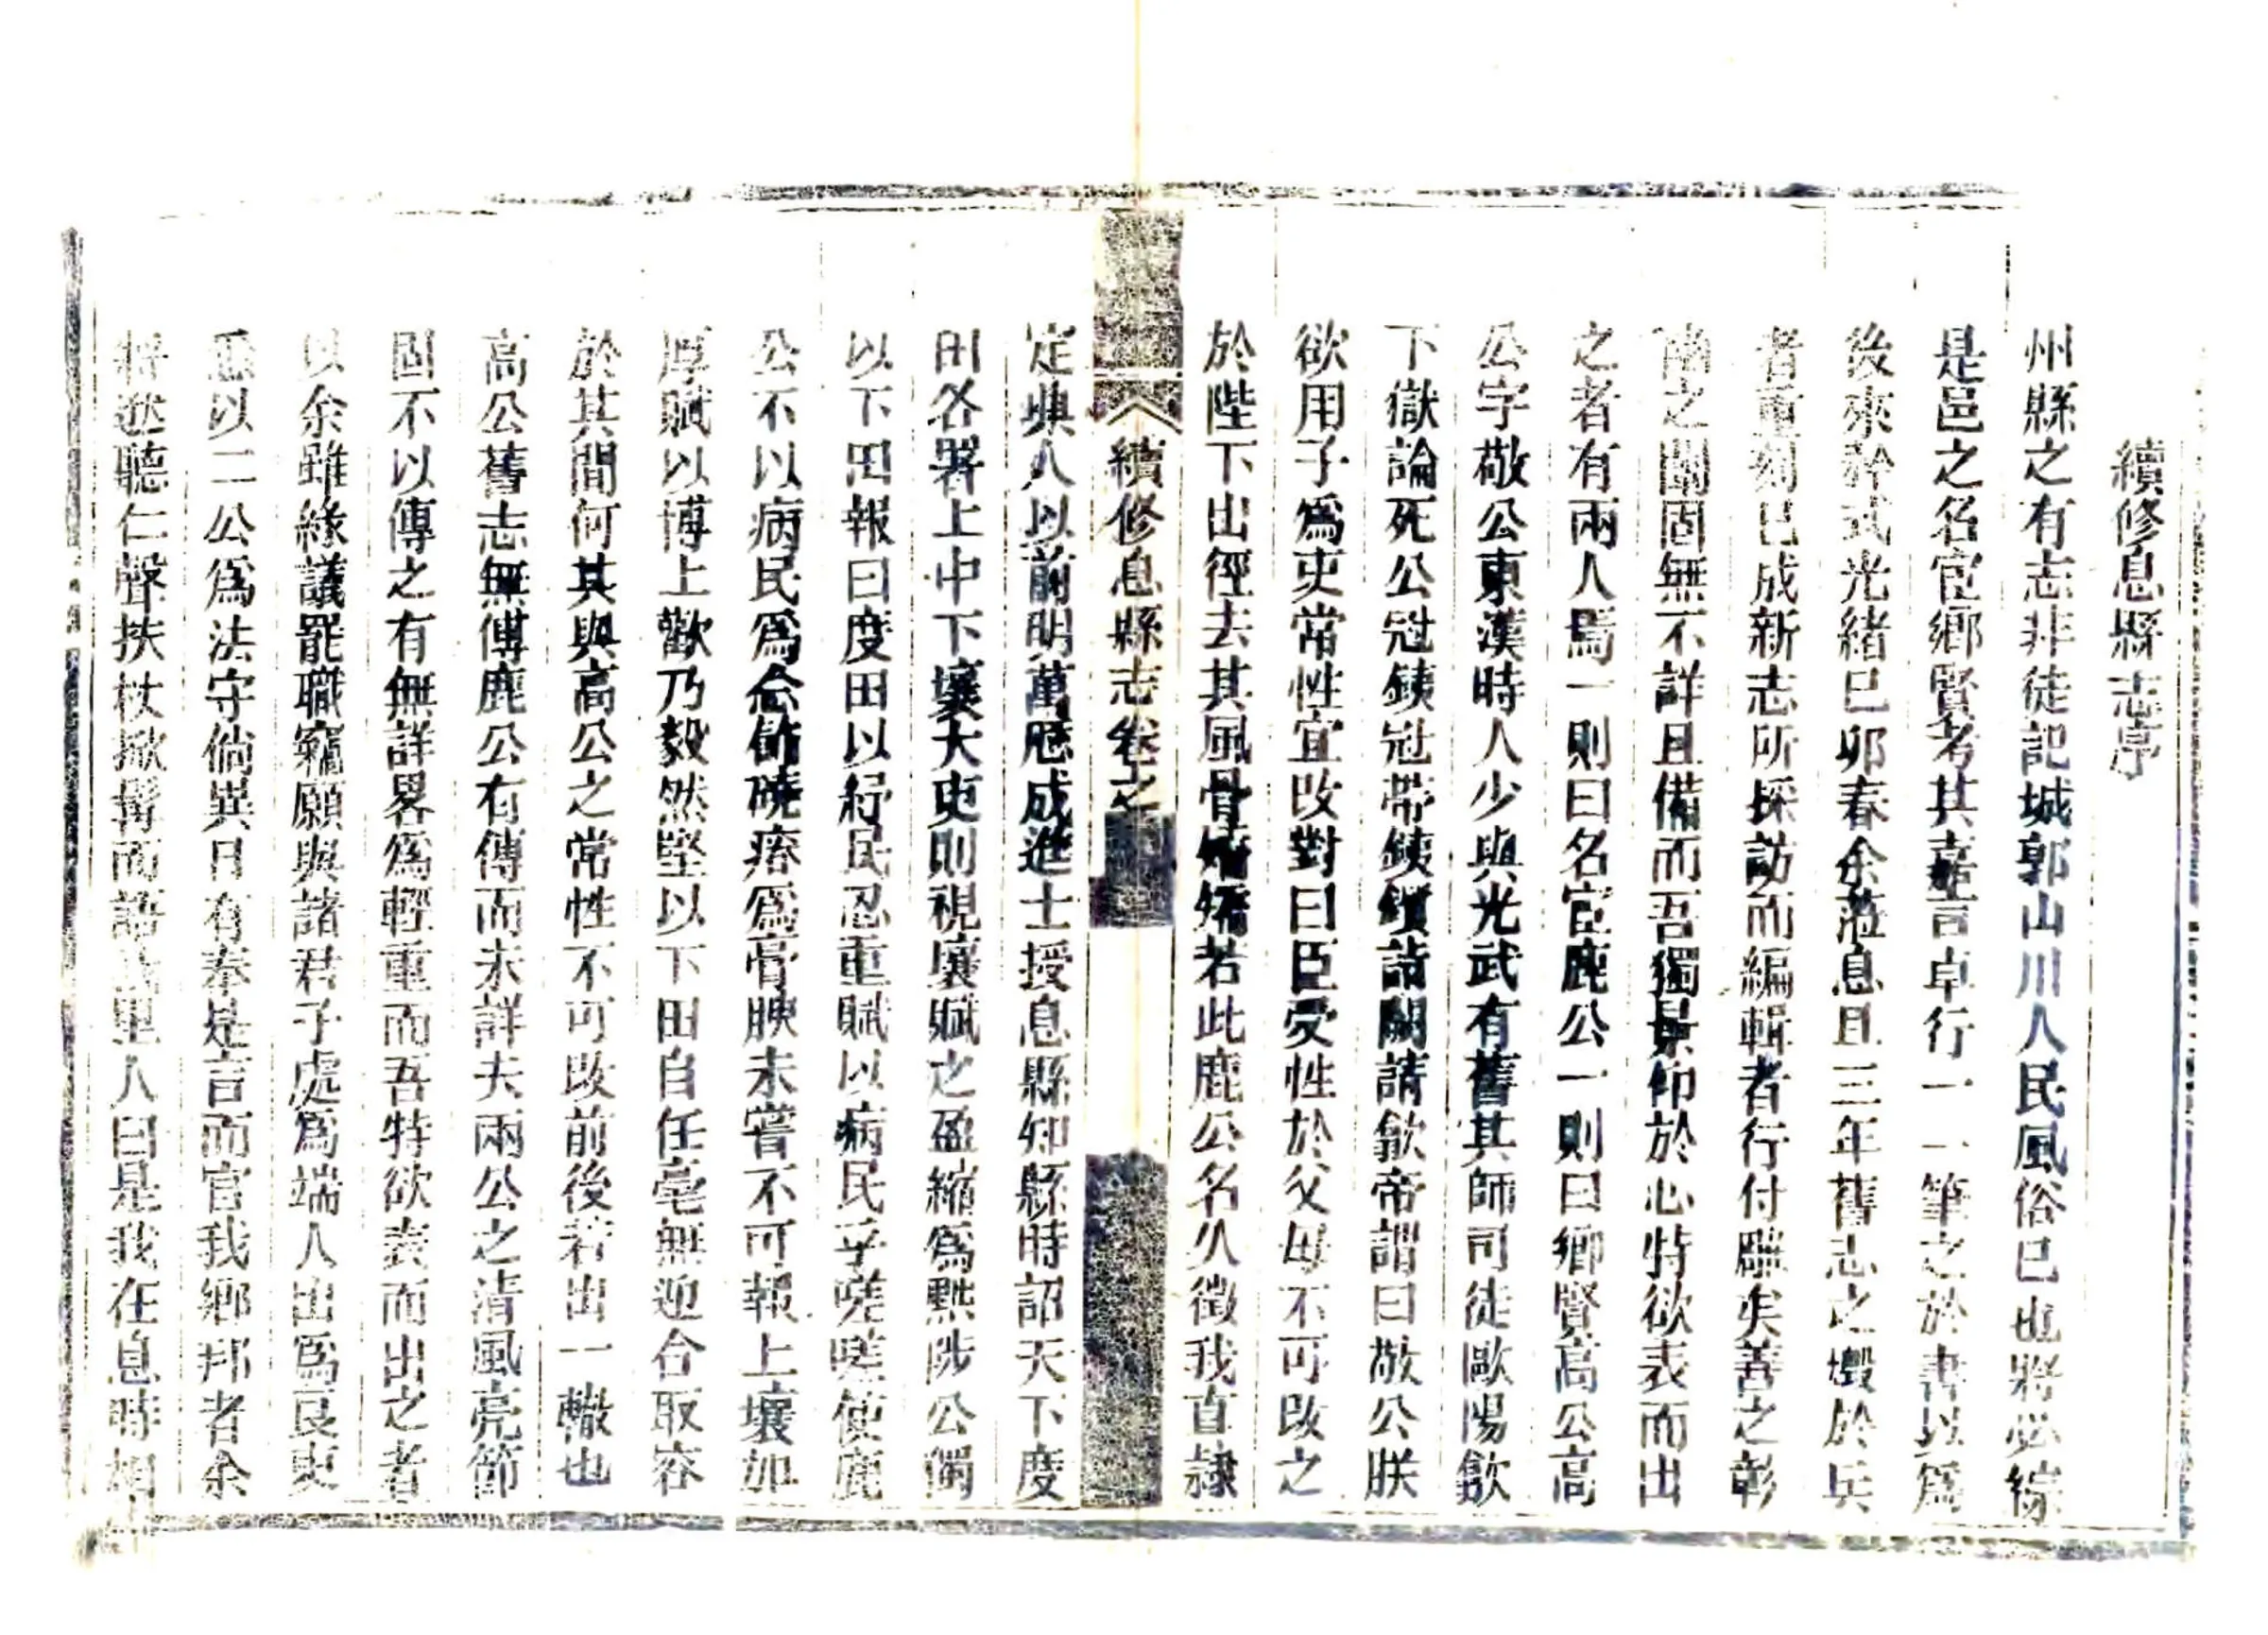 續修息縣志序
州縣之有志非徒記城郭山川人民風俗已也將必綜
是邑之名宦鄉賢考其嘉言卓行一一筆之於書以爲
後來矜式光緒巳卯春余蒞息且三年舊志之燬於兵
者重刻已成新志所採訪而編輯者行付雕矣善之彰
幽之闡固無不詳且備而吾獨景仰於心特欲表而出
之者有兩人焉一則曰名宦鹿公一則曰鄉賢高公高
公字敬公東漢時人少與光武有舊其師司徒歐陽歙
下獄論死公冠鐵冠帶鐵鑕詣闕請歙帝謂曰敬公朕
欲用子爲吏常性宜改對曰臣受性於父母不可改之
於陛下出徑去其風骨矯矯若此鹿公名久徵我直隸
續修息縣志卷之
定興人以前明萬歷成進士授息縣知縣時詔天下度
田各署上中下壤大吏則視壤賦之盈縮爲黜陟公獨
以下田報曰度田以紓民忍重賦以病民乎嗟嗟使鹿
公不以病民爲念飾磽瘠爲膏腴未嘗不可報上壤加
厚賦以博上歡乃毅然堅以下田自任毫無迎合取容
於其間何其與高公之常性不可改前後若出一轍也
高公舊志無傳鹿公有傳而未詳夫兩公之清風亮節
固不以傳之有無詳畧爲輕重而吾特欲表而出之者
以余雖緣議罷職竊願與諸君子處爲端人出爲良吏
以二公爲法守倘異日有奉是言而官我鄉邦者余
將逖聽仁聲扶杖掀髯而語里人曰是我在息時相